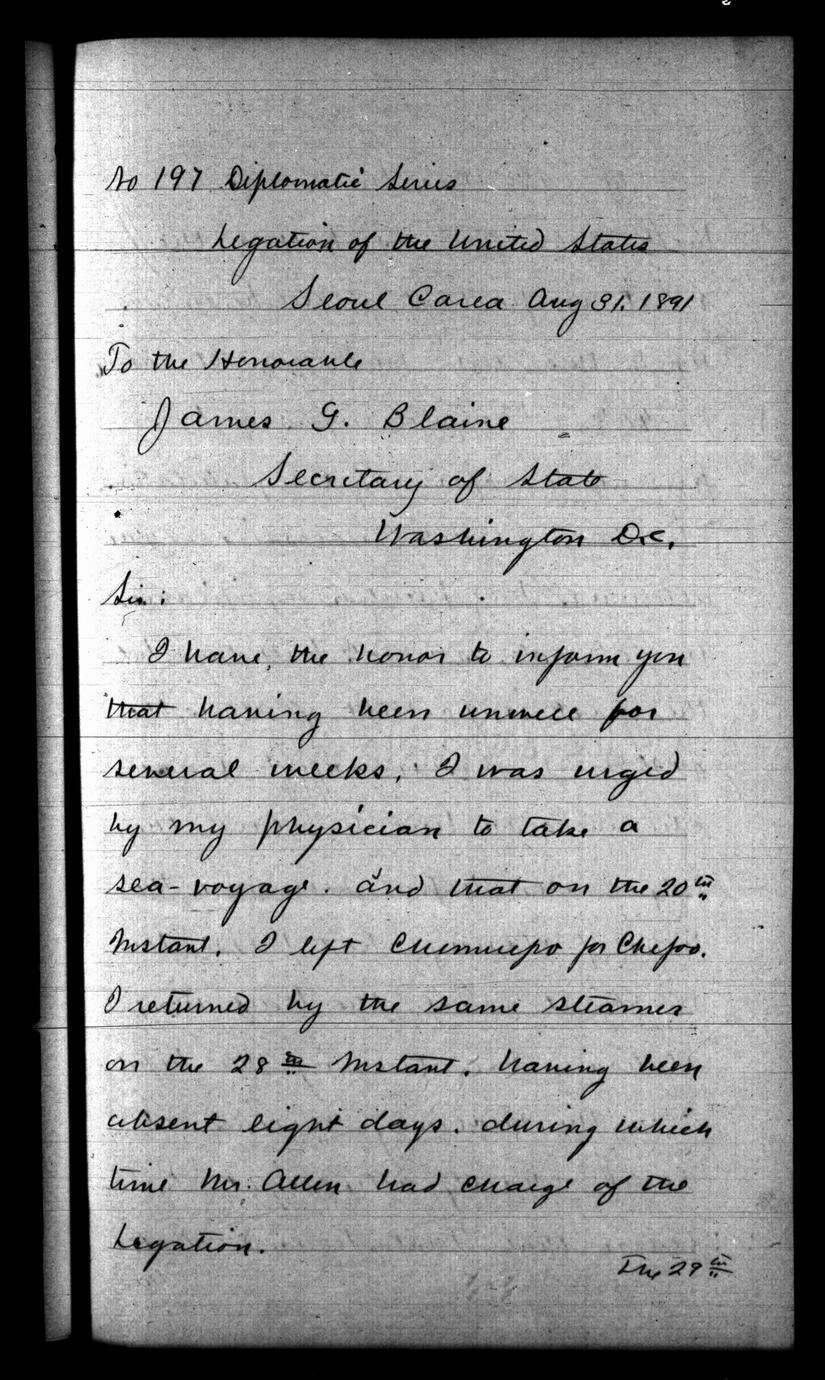 No 197 Diplomatic Series
Legation of the United States
Seoul Corea Aug 31. 1891
To the Honorable
James G. Blaine
Secretary of State
Washington D.C.
Sir:
I have, the honor to inform you
that having been unwell for
several weeks, I was urged
by my physician to take a
sea-voyage. and that on the 20th
Instant. I left Chemulpo for Chefoo.
I returned by the same steamer
on the 28th Instant. having been
absent eight days. during which
time Mr. Allen had charge of the
Legation.
The 29th